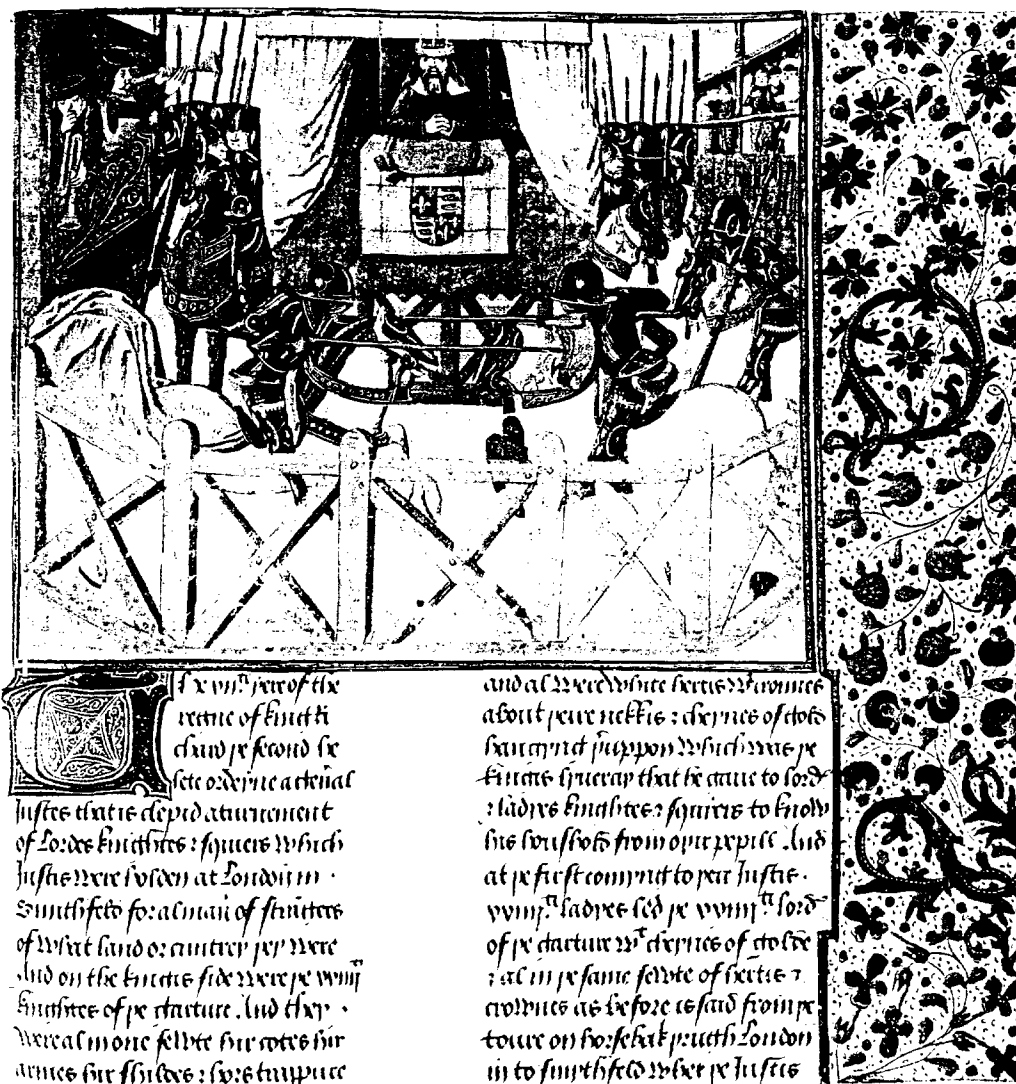 The xiiij yere of the
regne of kinct Ri
chard þe second he
lete ordeyne a
Justes that is clepid a turnement
of Lordes knightes & squiers Which
Justis Were holden at London in
Smithfeld for al man of
of What land or cuntrey þey Were
And on the kingis side Were þe xxiiij
knightes of þe gartture And they
Were al in one sewte hir cotes hir
armes hir shildes & hors trappure
and al Were White hertis Wt crounes
about þeire nekkis & cheynes of gold
hanging þeruppon Which was þe
kingis lyueray that he gaue to lordes
& ladyes knightes & squiers to know
his houshold from oþir pepill And
at þe first comyng to þeir Justis
xxiiijti ladyes led þe xxiiijti lord
of þe gartture Wt cheynes of golde
& al in þe same sewte of hertis &
crownes as before is said from þe
toure on horsebak þrugth London
in to smythfeld Wher þe Justis